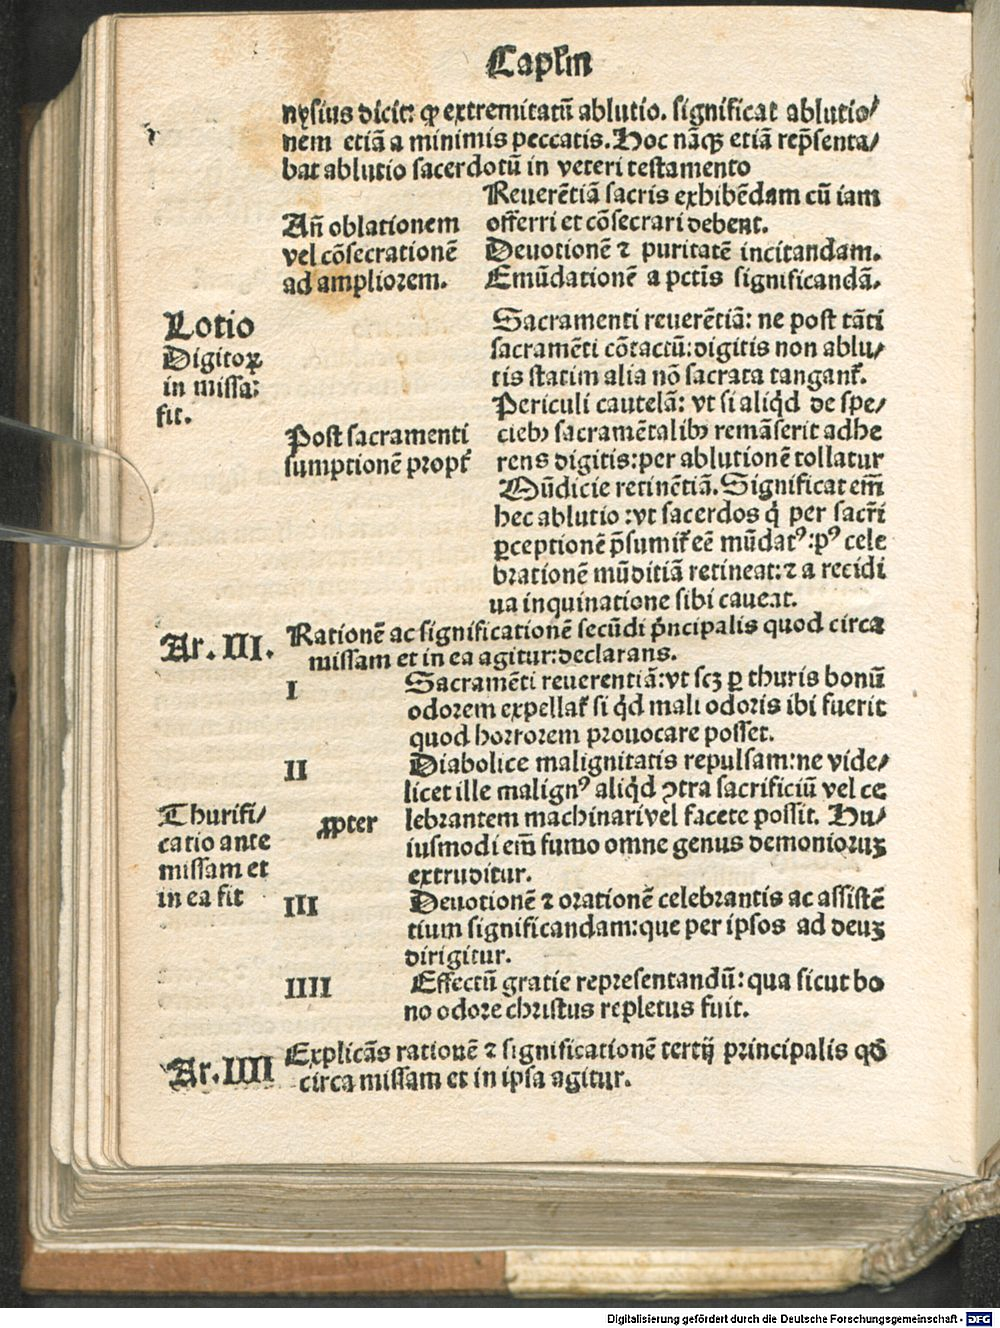 Capl̄m
nẏsius dicit: ꝙ extremitatū ablutio. significat ablutio/
nem etiā a minimis peccatis. Hoc nāqꝫ etiā rep̄senta/
bat ablutio sacerdotū in veteri testamento
Reuerētiā sacris exhibēdam cū iam
Añ oblationem
offerri et cōsecrari debent.
vel cōsecrationē
Deuotionē ⁊ puritatē incitandam.
ad ampliorem.
Emūdationē a pctīs significandā.
Lotio
Digitoꝝ
in missa:
fit.
Sacramenti reuerētiā: ne post tāti
sacramēti cōtactū: digitis non ablu/
tis statim alia nō sacrata tangant̄.
Periculi cautelā: vt si aliqd̄ de spe/
Post sacramenti
ciebꝫ sacramētalibꝫ remāserit adhe
sumptionē propt̄
rens digitis: per ablutionē tollatur
Mūdicie retinētiā. Significat em̄
hec ablutio: vt sacerdos q̇ per sacr̄i
ꝑceptionē p̄sumit̄ eē mūdatꝰ: pꝰ cele
brationē mūditiā retineat: ⁊ a recidi
ua inquinatione sibi caueat.
Ar. III.
Rationē ac significationē secūdi pṅcipalis quod circa
missam et in ea agitur: declarans.
I
Sacramēti reuerentiā: vt scꝫ ꝑ thuris bonū
odorem expellat̄ si qd̄ mali odoris ibi fuerit
quod horrorem prouocare posset.
II
Diabolice malignitatis repulsam: ne vide/
licet ille malignꝰ aliqd̄ ꝯtra sacrificiū vel ce
Thurifi/
catio ante
missam et
in ea fit
ꝓpter
lebrantem machinari vel facere possit. Hu/
iusmodi em̄ fumo omne genus demonioruꝫ
extruditur.
III
Deuotionē ⁊ orationē celebrantis ac assistē
tium significandam: que per ipsos ad deuꝫ
dirigitur.
IIII
Effectū gratie representandū: qua sicut bo
no odore christus repletus fuit.
Ar. IIII
Explicās rationē ⁊ significationē tertij principalis qđ
circa missam et in ipsa agitur.
Digitalisierung gefördert durch die Deutsche Forschungsgemeinschaft - DFG